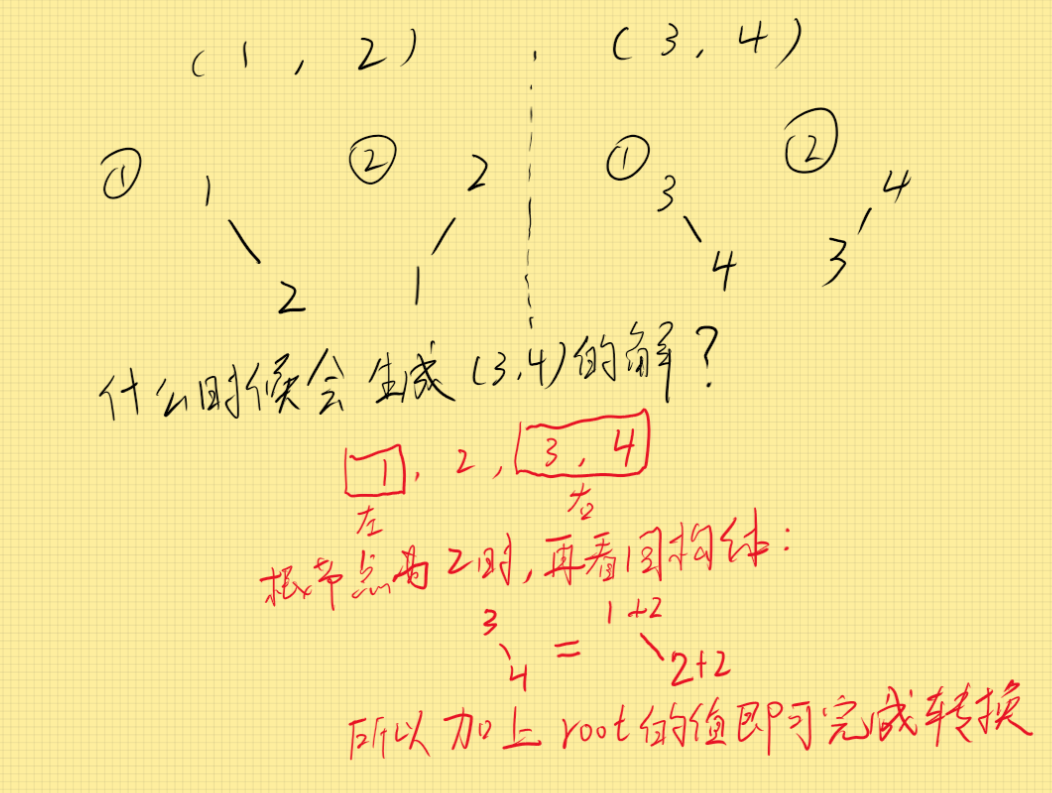 (1, 2) , (3, 4)
① 1 ② 2 ① 3 ② 4
2 1 4 3
什么时候会生成(3,4)的解?
1, 2, 3, 4
左 右
根节点为2时,再看同构体:
3 = 1+2
4 2+2
所以加上root的值即可完成转换